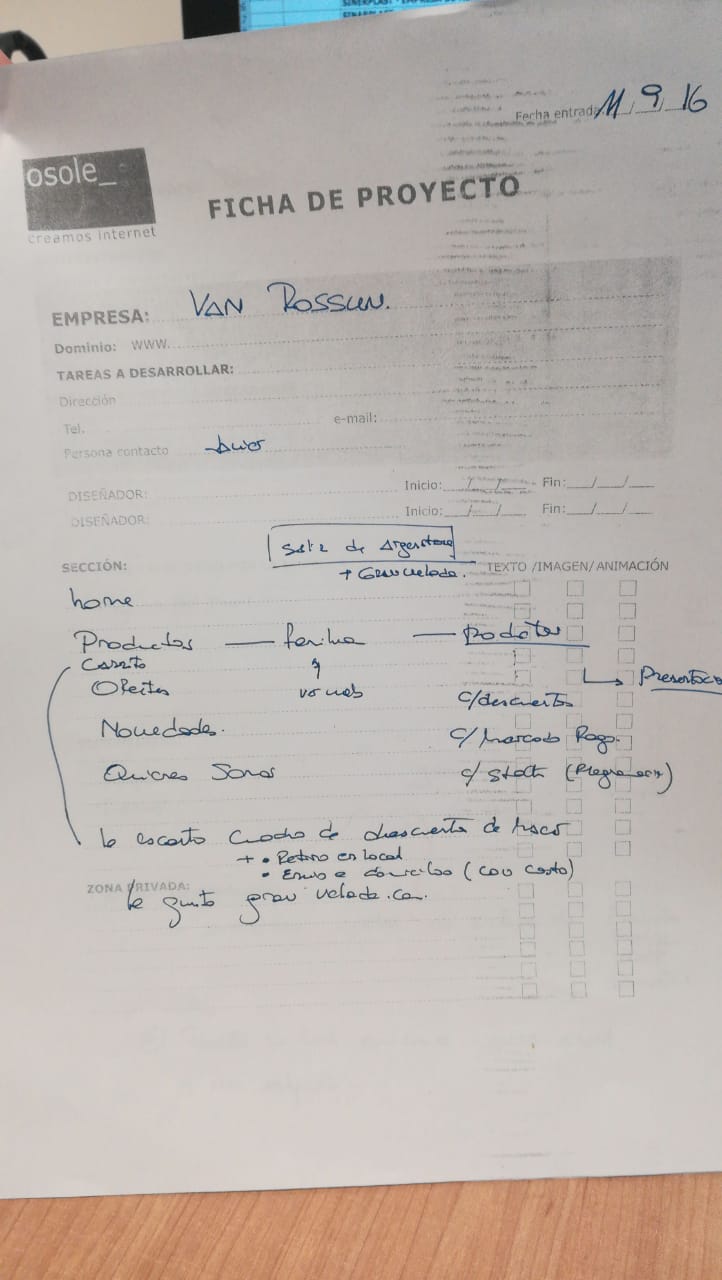 Fecha entrada 11 / 9 / 16
osole_
creamos internet
FICHA DE PROYECTO
EMPRESA: VAN ROSSUN.
Dominio: WWW.
TAREAS A DESARROLLAR:
Dirección
Tel. e-mail:
Persona contacto
DISEÑADOR: Inicio: __/__/__ Fin: __/__/__
DISEÑADOR: Inicio: __/__/__ Fin: __/__/__
de Argentina
SECCIÓN: + Gran velada. TEXTO /IMAGEN/ ANIMACIÓN
home
Productos — familia — productos
Carrito
Ofertas c/descuentos
Novedades. c/ Mercado Pago.
Quienes Somos c/ Stock
de descuento de
+ • Retiro en local
• Envio a domicilio (con costo)
ZONA PRIVADA:
le gusto gran velada.com.